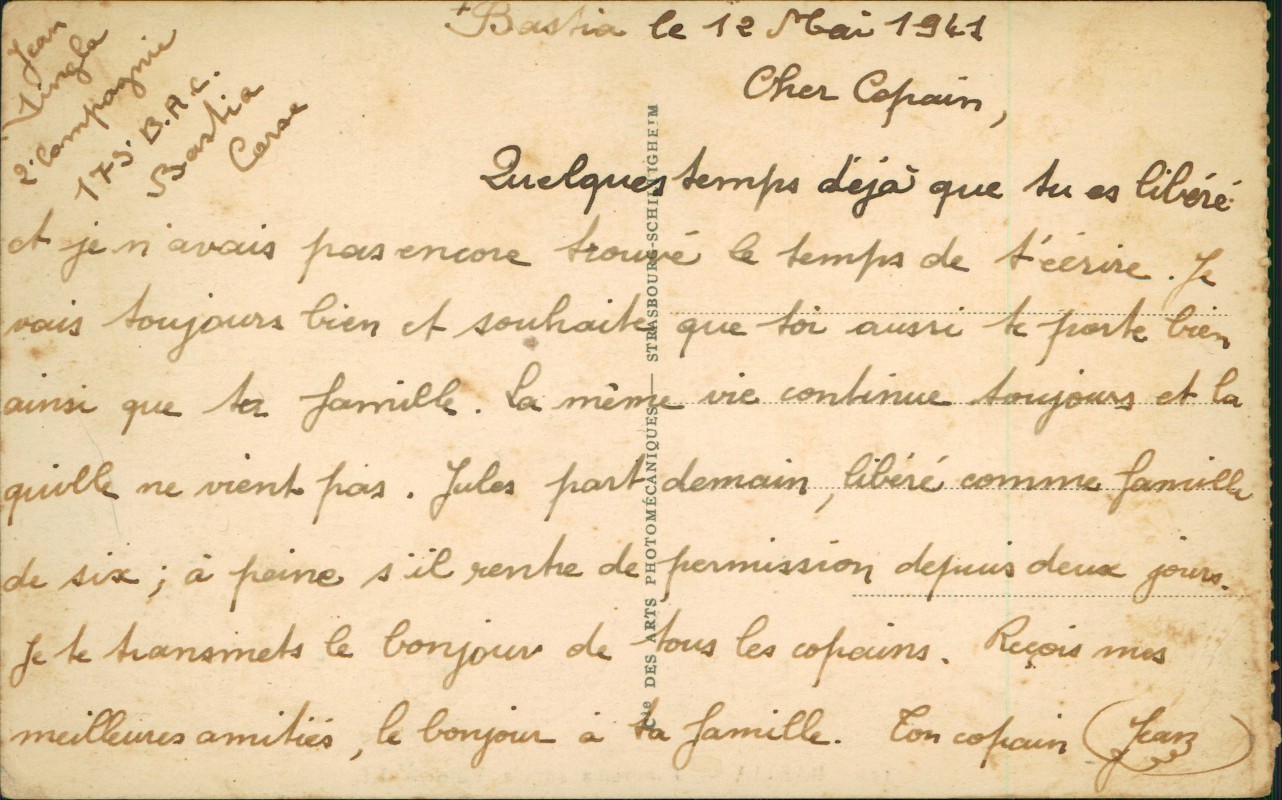 Jean
Lingla
2e Compagnie
173e B.A.C.
Bastia
Corse
Bastia le 12 Mai 1941
Cher Copain,
Quelques temps déjà que tu es libéré
et je n'avais pas encore trouvé le temps de t'écrire. Je
vais toujours bien et souhaite que toi aussi te porte bien
ainsi que ta famille. La même vie continue toujours et la
quille ne vient pas. Jules part demain, libéré comme famille
de six ; à peine s'il rentre de permission depuis deux jours.
Je te transmets le bonjour de tous les copains. Reçois mes
meilleures amitiés, le bonjour à ta famille. Ton copain (Jean)
Cie DES ARTS PHOTOMÉCANIQUES — STRASBOURG-SCHILTIGHEIM